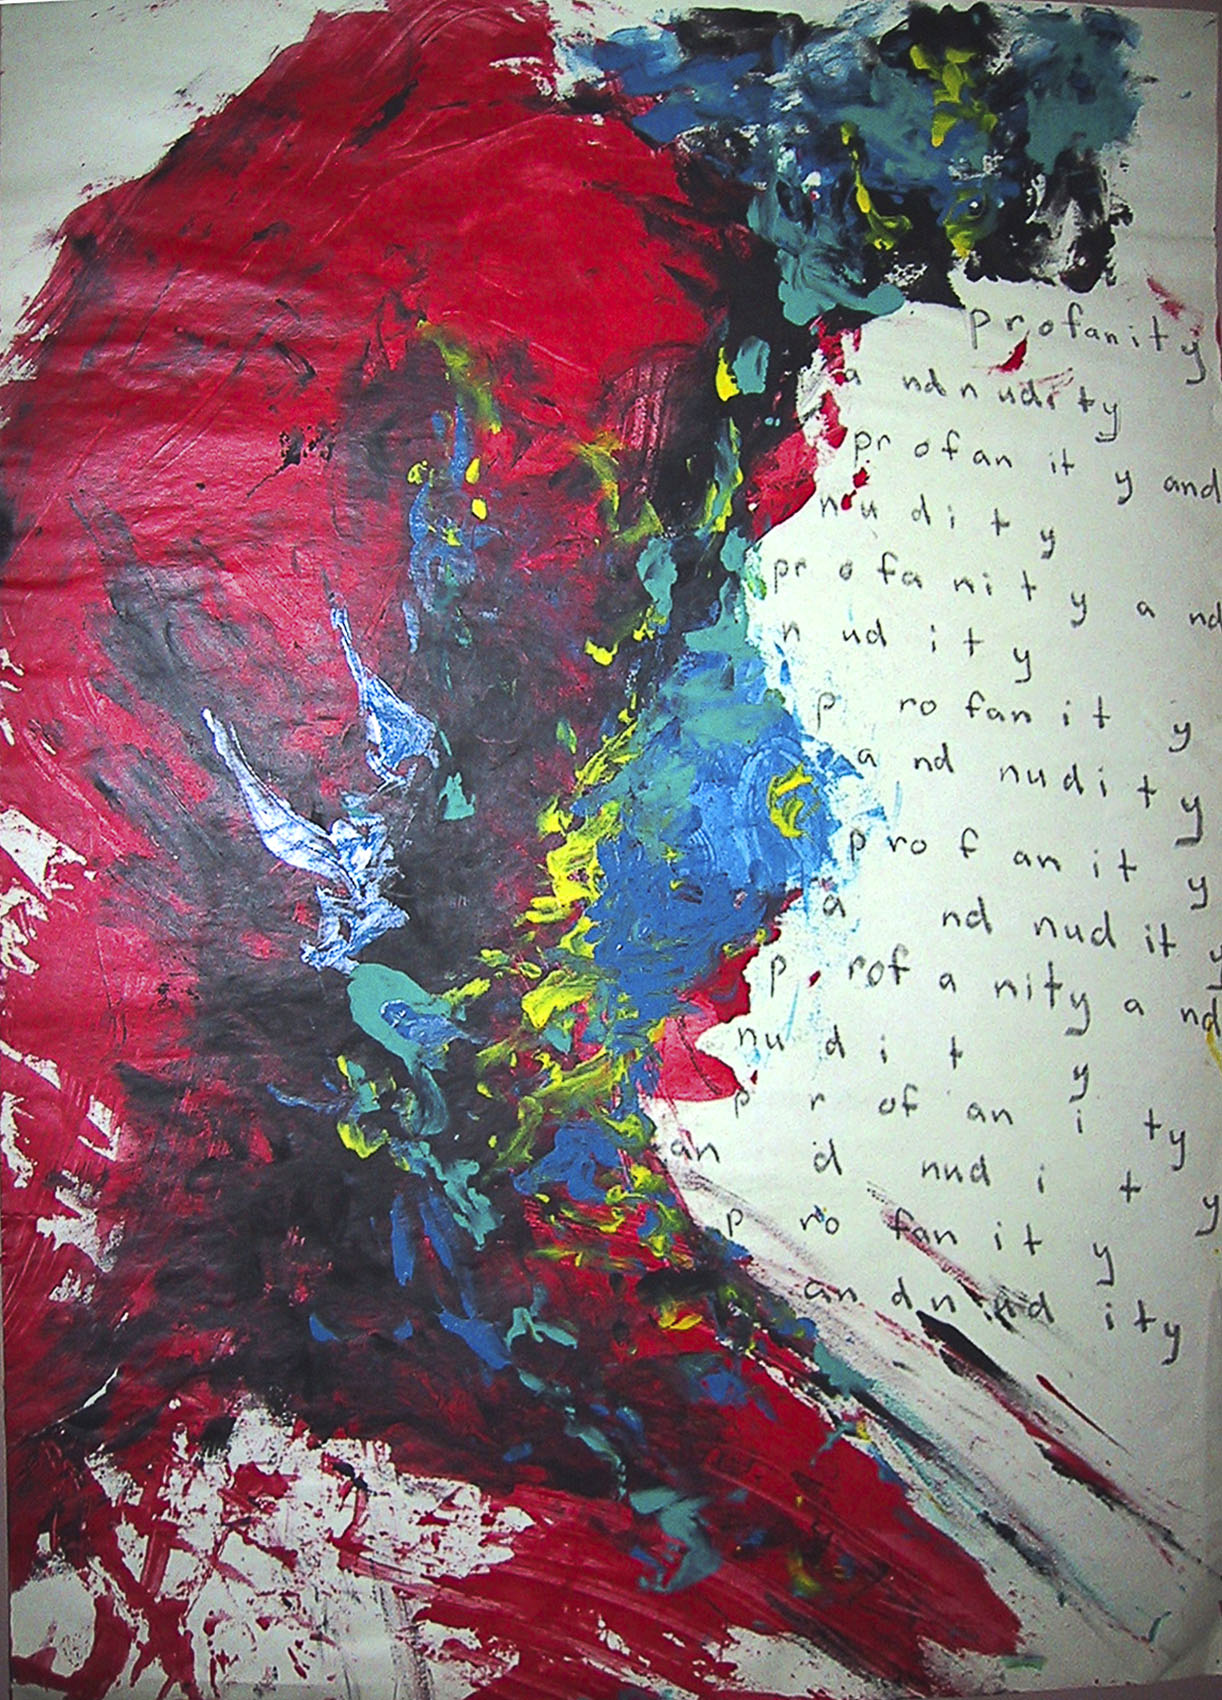 profanity
and nudity
profanity and
nudity
profanity and
nudity
profanity
and nudity
profanity
and nudity
profanity and
nudity
profanity
and nudity
profanity
and nudity